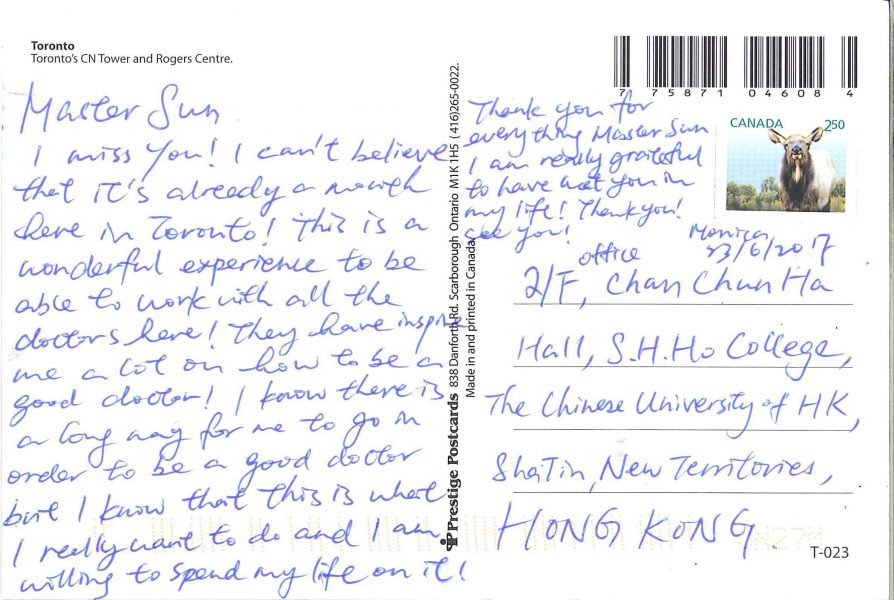 Toronto
Toronto's CN Tower and Rogers Centre.
Master Sun
I miss you! I can't believe
that it's already a month
here in Toronto! This is a
wonderful experience to be
able to work with all the
doctors here! They have inspire
me a lot on how to be a
good doctor! I know there is
a long way for me to go in
order to be a good doctor
but I know that this is what
I really want to do and I am
willing to spend my life on it!
Prestige Postcards 838 Danforth Rd. Scarborough Ontario M1K 1H5 (416)265-0022.
Made in and printed in Canada
7 75871 04608 4
CANADA 250
Thank you for
everything Master Sun
I am really grateful
to have met you in
my life! Thank you!
see you!
Monica
23/6/2017
office
2/F, Chan Chun Ha
Hall, S.H. Ho College,
The Chinese University of HK,
ShaTin, New Territories,
HONG KONG
T-023